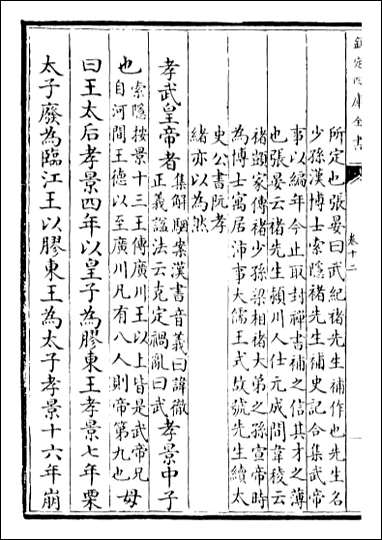 欽定四庫全書
卷十二
所定也張晏曰武紀褚先生補作也先生名
少孫漢博士索隱褚先生補史記合集武帝
事以編年今止取封禪書補之信其才之薄
也張云褚先生潁川人仕元成間韋稜云
褚顗家傳褚少孫梁相褚大弟之孫宣帝時
為博士寓居沛事大儒王式故號先生續太
史公書阮孝
緒亦以為然
孝武皇帝者集解駰案漢書音義曰諱徹正義諡法云克定禍亂曰武孝景中子
也索隱按景十三王傳廣川王以上皆是武帝兄自河間王德以至廣川凡有八人則帝第九也母
曰王太后孝景四年以皇子為膠東王孝景七年栗
太子廢為臨江王以膠東王為太子孝景十六年崩